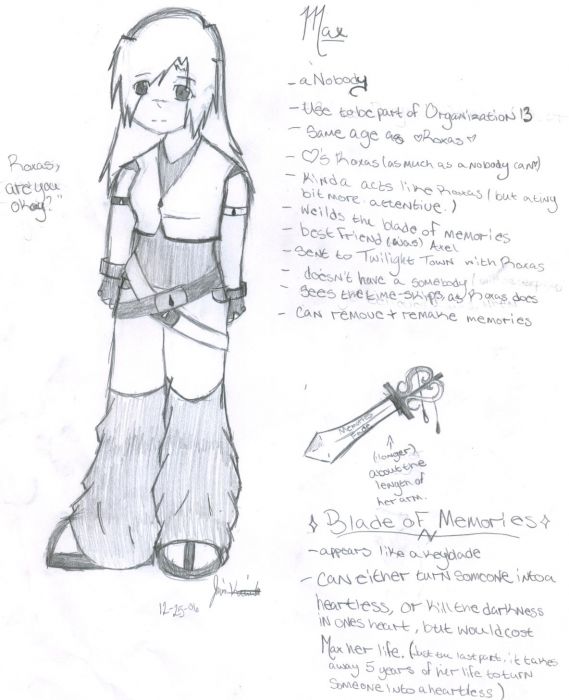 Max
- a Nobody
- Use to be part of Organization 13
- Same age as ♡Roxas♡
- ♡'s Roxas (as much as a nobody can♡)
- Kinda acts like Roxas (but a tiny
bit more attentive.)
- Weilds the blade of memories
- best friend (was) Axel
- sent to Twilight Town with Roxas
- doesn't have a somebody
- Sees the time-skips as Roxas does
- Can remove + remake memories
Roxas,
are you
okay?"
Memories
(longer)
about the
length of
her arm.
✧ Blade of Memories ✧
- appears like a keyblade
- Can either turn someone into a
heartless, or kill the darkness
in ones heart, but would cost
Max her life. (Just the last part. it takes
away 5 years of her life to turn
someone into a heartless)
12-25-06